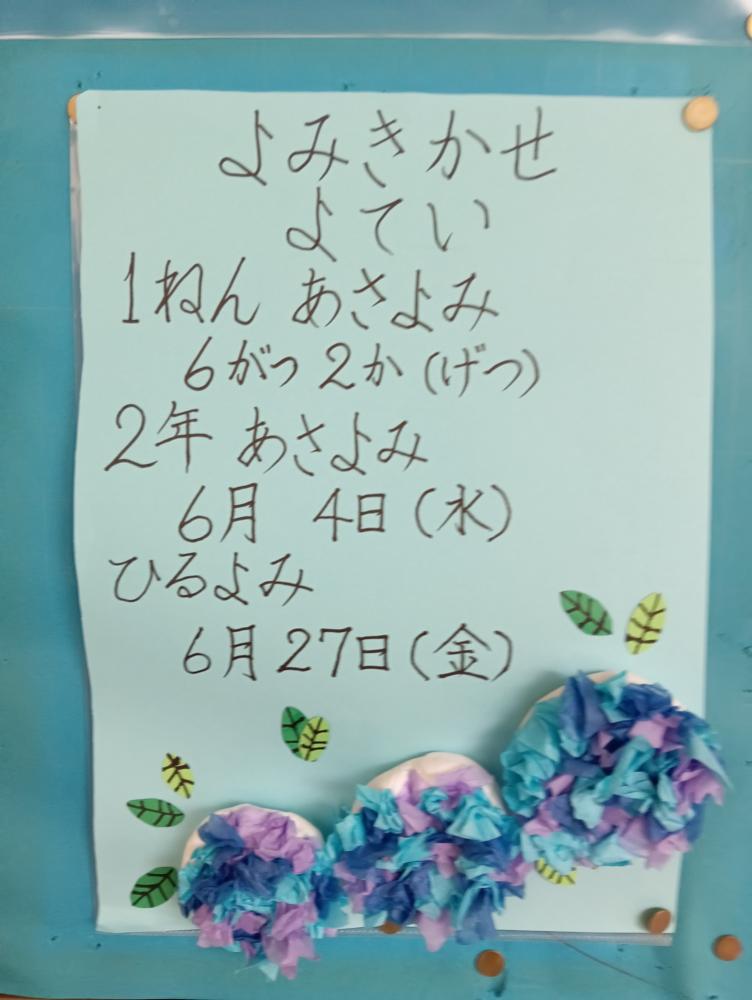 よみきかせ
よてい
1ねん あさよみ
6がつ 2か (げつ)
2年 あさよみ
6月 4日 (水)
ひるよみ
6月 27日 (金)